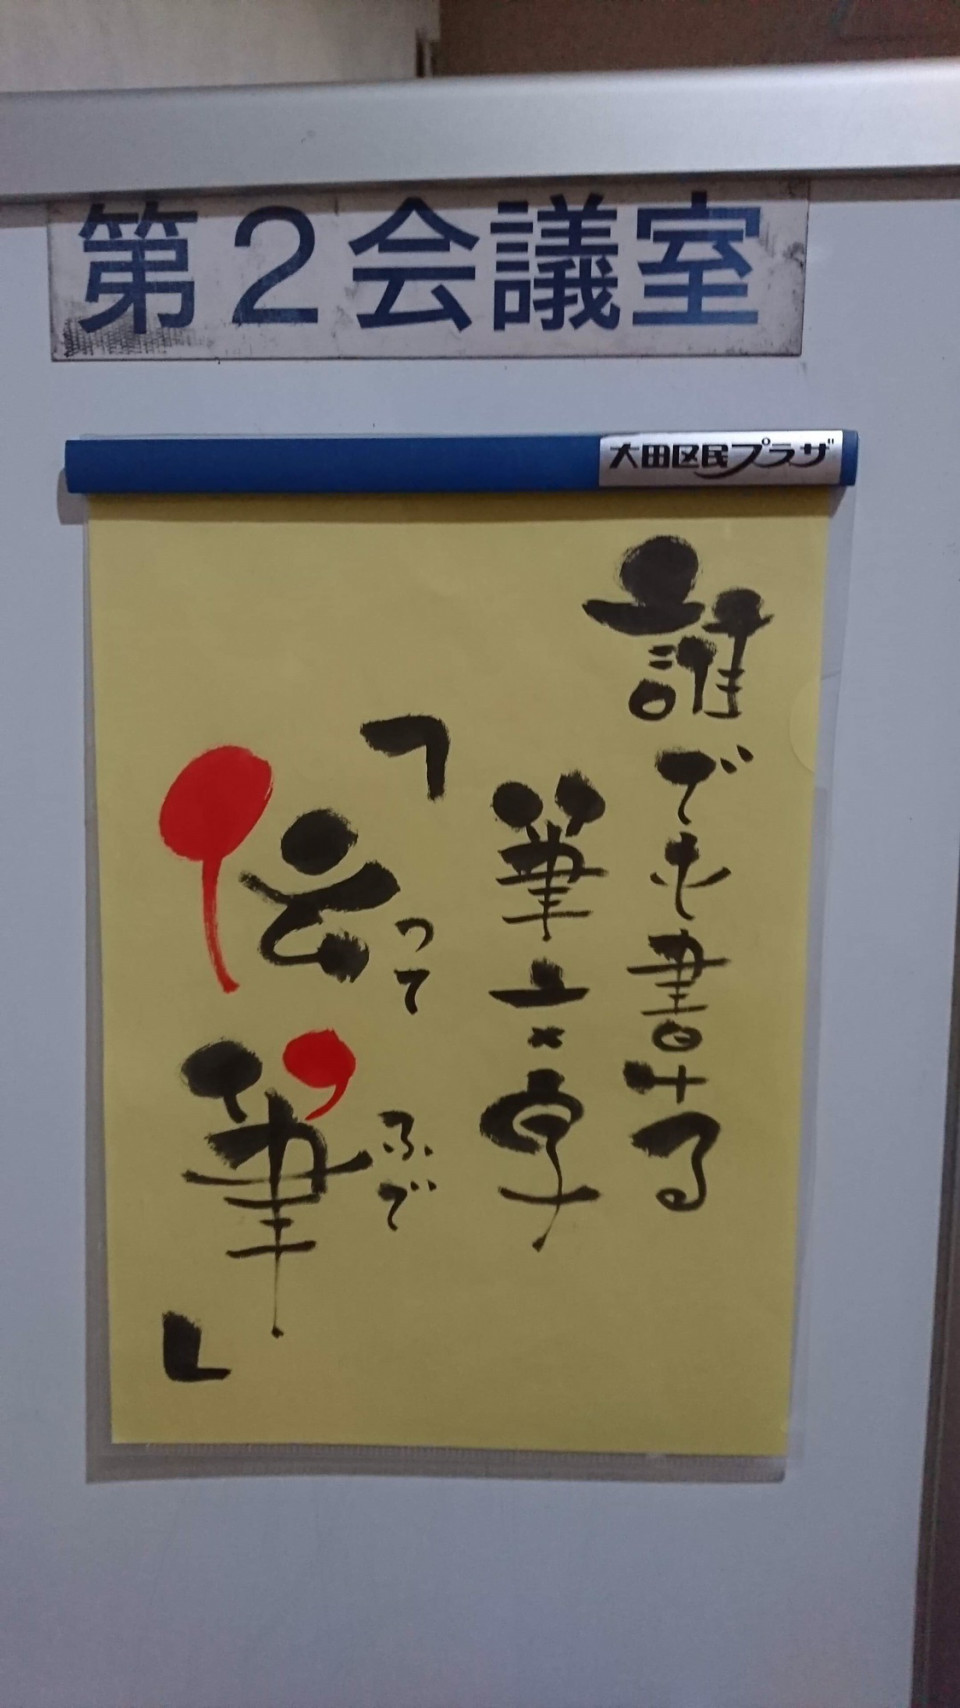 第2会議室
大田区民プラザ
誰でも書ける
筆文字
「伝って
筆ふで」